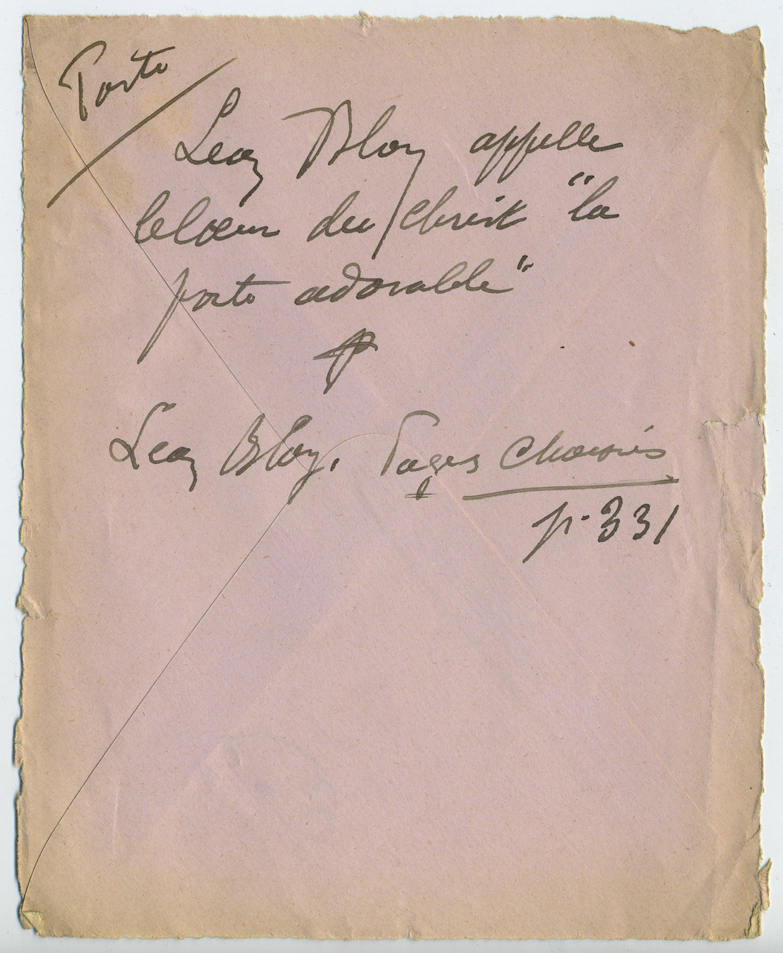 Porte
Léon Bloy appelle
le Cœur du Christ "la
porte adorable"
Léon Bloy, Pages Choisies
p. 331